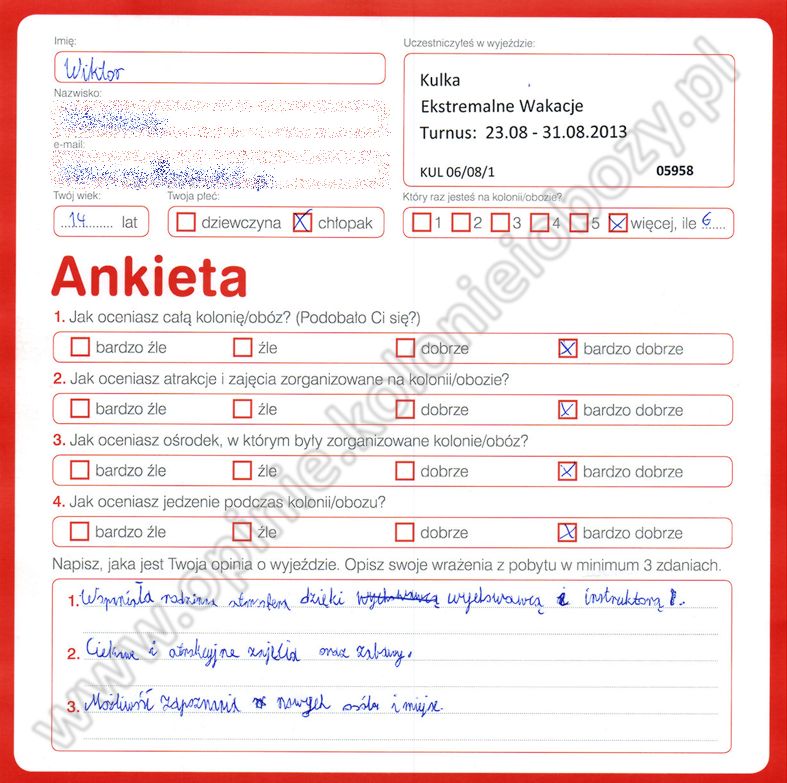 Imię:
Wiktor
Uczestniczyłeś w wyjeździe:
Kulka
Ekstremalne Wakacje
Turnus: 23.08 - 31.08.2013
KUL 06/08/1 05958
Nazwisko:
e-mail:
Twój wiek:
14 lat
Twoja płeć:
dziewczyna chłopak
Który raz jesteś na kolonii/obozie?
1 2 3 4 5 więcej, ile 6
Ankieta
1. Jak oceniasz całą kolonię/obóz? (Podobało Ci się?)
bardzo źle źle dobrze bardzo dobrze
2. Jak oceniasz atrakcje i zajęcia zorganizowane na kolonii/obozie?
bardzo źle źle dobrze bardzo dobrze
3. Jak oceniasz ośrodek, w którym były zorganizowane kolonie/obóz?
bardzo źle źle dobrze bardzo dobrze
4. Jak oceniasz jedzenie podczas kolonii/obozu?
bardzo źle źle dobrze bardzo dobrze
Napisz, jaka jest Twoja opinia o wyjeździe. Opisz swoje wrażenia z pobytu w minimum 3 zdaniach.
1. Wspaniała rodzinna atmosfera dzięki wychowawcą i instruktorą.
2. Ciekawe i atrakcyjne zajęcia oraz zabawy.
3. Możliwość zapoznania nowych osób i miejsc.
www.opinie.kolonieiobozy.pl